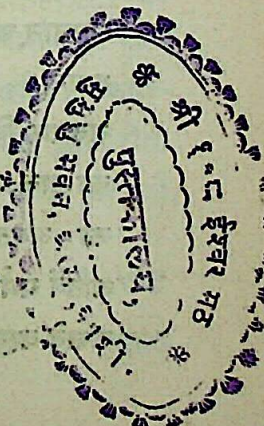 * श्री १०८ ईश्वर मठ *
पुस्तकालय,
मुमुक्षु भवन,